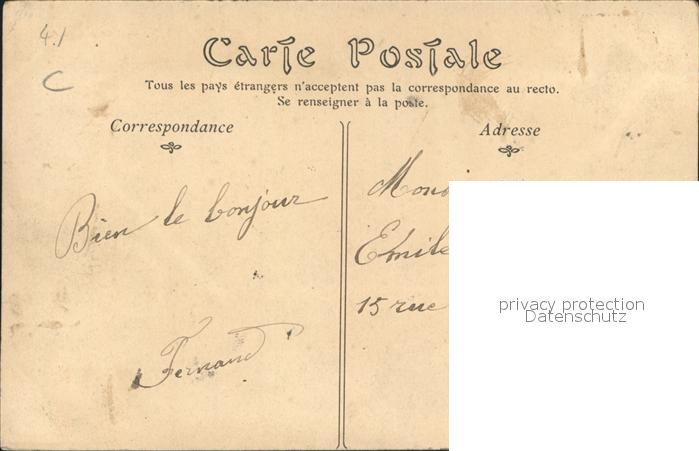 4.1
C
Carte Postale
Tous les pays étrangers n'acceptent pas la correspondance au recto.
Se renseigner à la poste.
Correspondance
Adresse
Bien le bonjour
Fernand
Emile
15 rue
privacy protection
Datenschutz